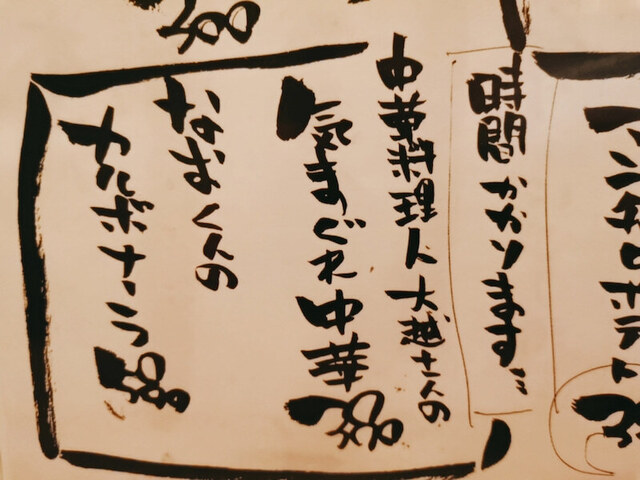 アンチョビポテト
時間かかります…
中華料理人大越さんの
気まぐれ中華
なおくんの
カルボナーラ